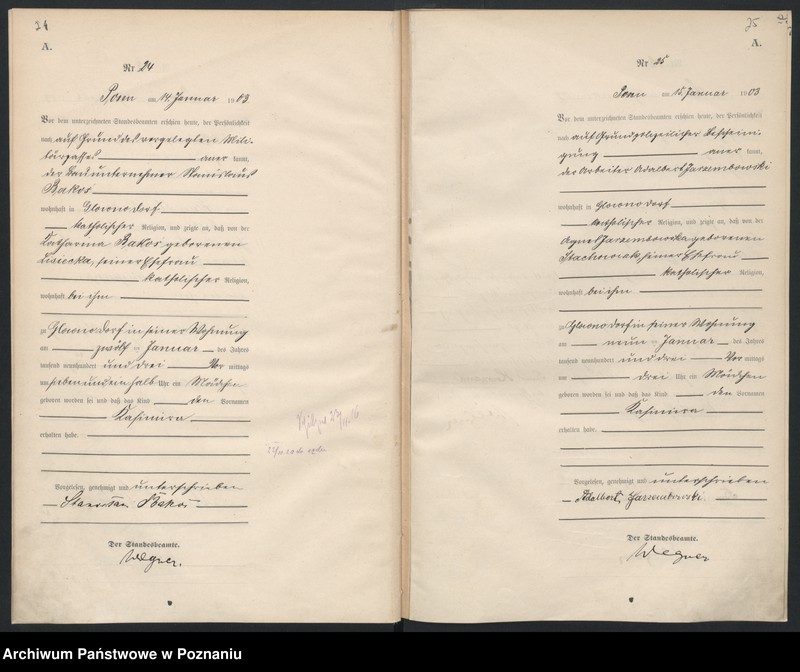 24
A.
Nr 24
Posen am 14. Januar 1903
Vor dem unterzeichneten Standesbeamten erschien heute, der Persönlichkeit
nach auf Grund des vorgelegten Mili-
tärpasses anerkannt,
der Bauunternehmer Stanislaus
Bakos
wohnhaft in Glowno Dorf
katholischer Religion, und zeigte an, daß von der
Katharina Bakos geborenen
Lisiecka, seiner Ehefrau
katholischer Religion,
wohnhaft bei ihm
zu Glowno Dorf in seiner Wohnung
am zwölf ten Januar des Jahres
tausend neunhundert und drei Vor mittags
um sieben und ein halb Uhr ein Mädchen
geboren worden sei und daß das Kind den Vornamen
Kasimira
erhalten habe.
Vorgelesen, genehmigt und unterschrieben
Stanisław Bakoś
Der Standesbeamte.
Wegner.
25
A.
Nr 25
Posen am 15. Januar 1903
Vor dem unterzeichneten Standesbeamten erschien heute, der Persönlichkeit
nach auf Grund polizeilicher Beschein-
igung anerkannt,
der Arbeiter Adalbert Jarzembowski
wohnhaft in Glowno Dorf
katholischer Religion, und zeigte an, daß von der
Agnes Jarzembowska geborenen
Stachowiak, seiner Ehefrau
katholischer Religion,
wohnhaft bei ihm
zu Glowno Dorf in seiner Wohnung
am neun ten Januar des Jahres
tausend neunhundert und drei Vor mittags
um drei Uhr ein Mädchen
geboren worden sei und daß das Kind den Vornamen
Kasimira
erhalten habe.
Vorgelesen, genehmigt und unterschrieben
Adalbert Jarzembowski
Der Standesbeamte.
Wegner
Archiwum Państwowe w Poznaniu